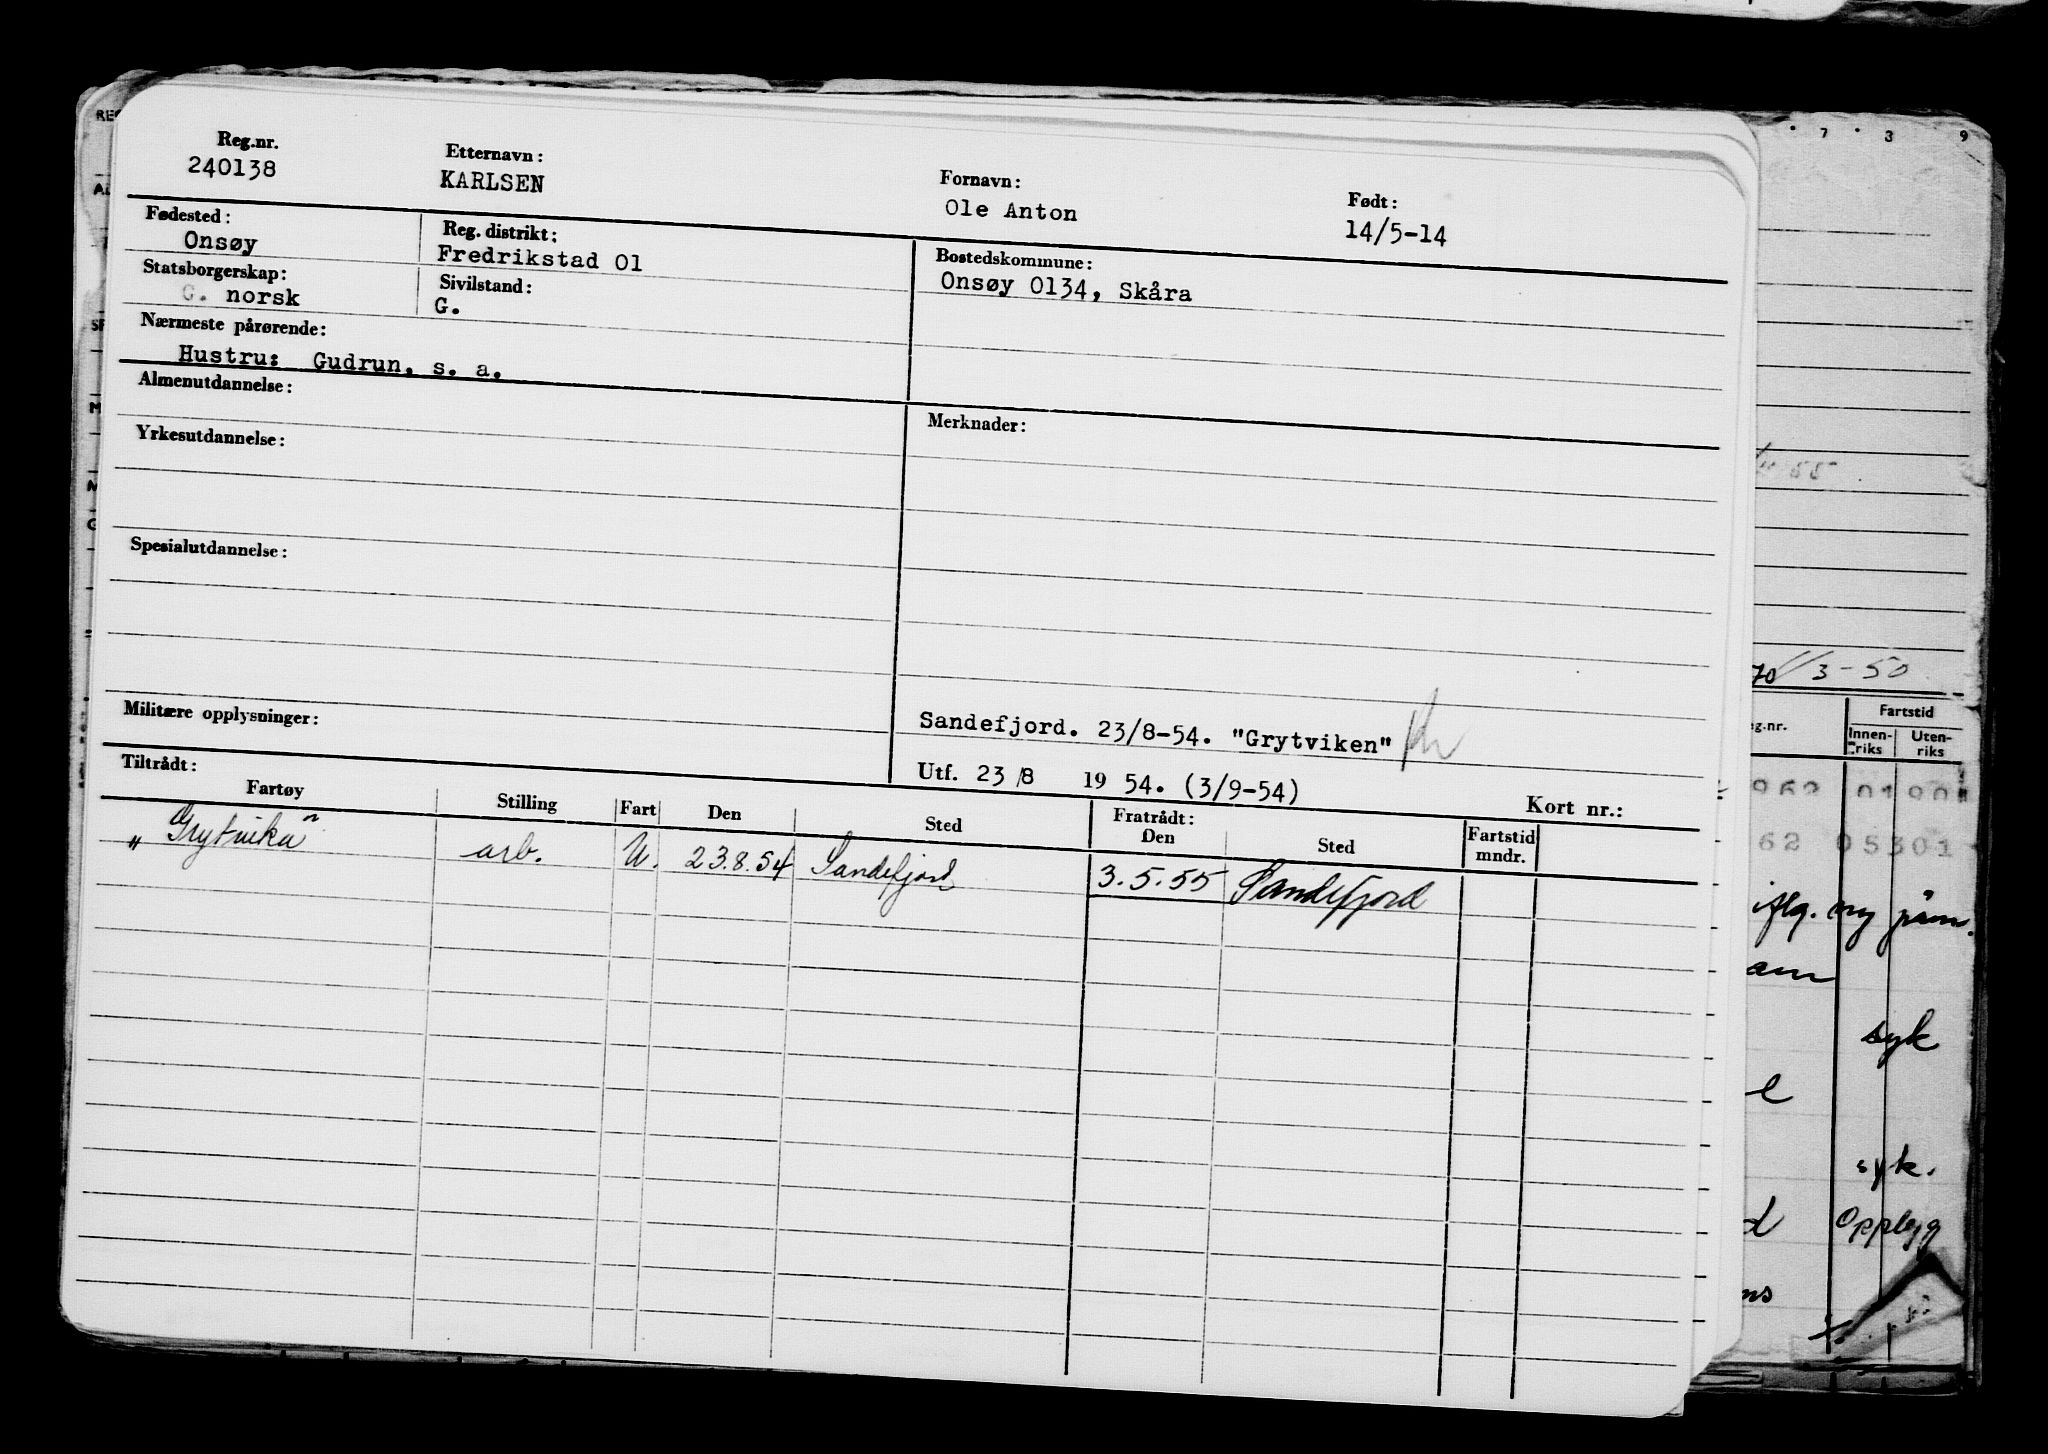 Reg.nr. Etternavn: Fornavn: Født:
240138 KARLSEN Ole Anton 14/5-14
Fødested: Reg. distrikt: Bostedskommune:
Onsøy Fredrikstad 01 Onsøy 0134, Skåra
Statsborgerskap: Sivilstand:
G. norsk G.
Nærmeste pårørende:
Hustru: Gudrun, s. a.
Almenutdannelse: Merknader:
Yrkesutdannelse:
Spesialutdannelse:
Militære opplysninger:
Sandefjord. 23/8-54. "Grytviken"
Utf. 23/8 19 54. (3/9-54) Kort nr.:
Tiltrådt: Fratrådt:
Fartøy Stilling Fart Den Sted Den Sted Fartstid mndr.
„Grytvika" arb. U. 23.8.54 Sandefjord 3.5.55 Sandefjord
7 3 9
55
70 1/3-50
Fartstid
Innen-riks Uten-riks
syk
syk.
Opplegg